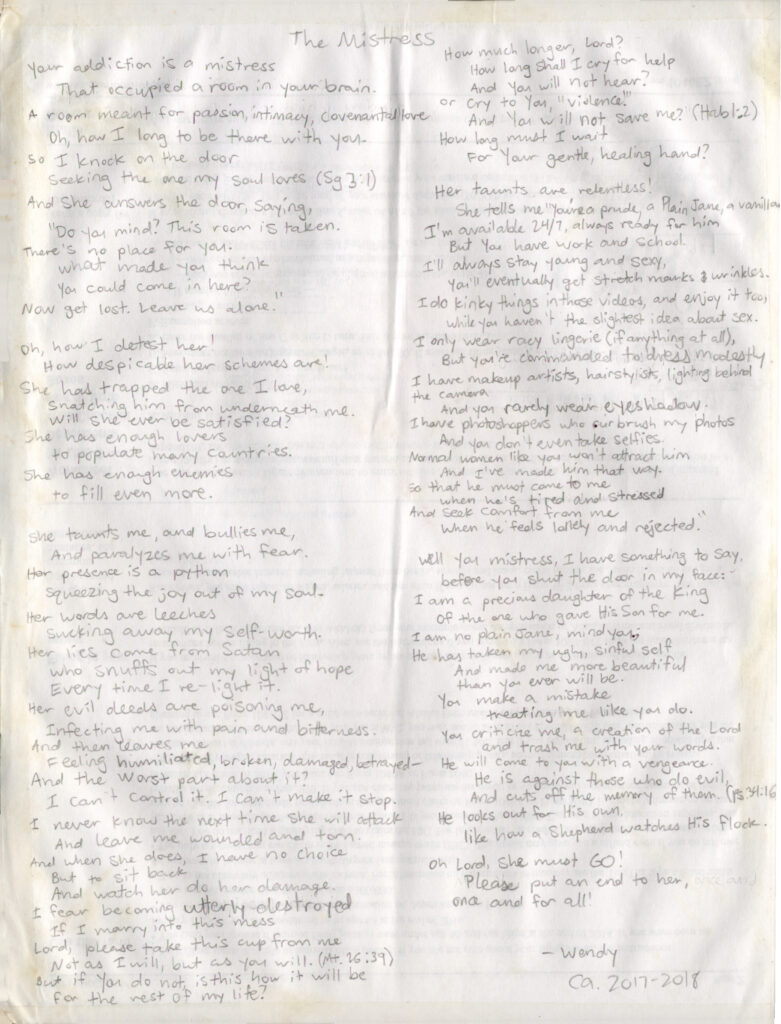 The Mistress
Your addiction is a mistress
That occupied a room in your brain.
A room meant for passion, intimacy, covenantal love
Oh, how I long to be there with you.
So I knock on the door
Seeking the one my soul loves (Sg 3:1)
And She answers the door, saying,
"Do you mind? This room is taken.
There's no place for you.
What made you think
You could come in here?
Now get lost. Leave us alone."
Oh, how I detest her!
How despicable her schemes are!
She has trapped the one I love,
Snatching him from underneath me.
Will she ever be satisfied?
She has enough lovers
to populate many countries.
She has enough enemies
to fill even more.
She taunts me, and bullies me,
And paralyzes me with fear.
Her presence is a python
Squeezing the joy out of my soul.
Her words are leeches
Sucking away my self-worth.
Her lies come from Satan
who snuffs out my light of hope
Every time I re-light it.
Her evil deeds are poisoning me,
Infecting me with pain and bitterness.
And then leaves me
Feeling humiliated, broken, damaged, betrayed-
And the worst part about it?
I can't control it. I can't make it stop.
I never know the next time she will attack
And leave me wounded and torn.
And when she does, I have no choice
But to sit back
And watch her do her damage.
I fear becoming utterly destroyed
If I marry into this mess
Lord, please take this cup from me
Not as I will, but as you will. (Mt. 26:39)
But if You do not, is this how it will be
For the rest of my life?
How much longer, Lord?
How long shall I cry for help
And You will not hear?
or Cry to You, "violence!"
And You will not save me? (Hab 1:2)
How long must I wait
For Your gentle, healing hand?
Her taunts are relentless!
She tells me "You're a prude, a Plain Jane, a vanilla
I'm available 24/7, always ready for him
But you have work and school.
I'll always stay young and sexy,
You'll eventually get stretch marks & wrinkles.
I do kinky things in those videos, and enjoy it too,
while you haven't the slightest idea about sex.
I only wear racy lingerie (if anything at all),
But you're commanded to dress modestly.
I have makeup artists, hairstylists, lighting behind
the camera
And you rarely wear eyeshadow.
I have photoshoppers who airbrush my photos
And you don't even take selfies.
Normal women like you won't attract him
And I've made him that way.
So that he must come to me
when he's tired and stressed
And seek comfort from me
When he feels lonely and rejected."
Well you mistress, I have something to say,
before you shut the door in my face:-
I am a precious daughter of the King
Of the one who gave His Son for me.
I am no plain Jane, mind you;
He has taken my ugly, sinful self
And made me more beautiful
than you ever will be.
You make a mistake
treating me like you do.
You criticize me, a creation of the Lord
and trash me with your words.
He will come to you with a vengeance.
He is against those who do evil,
And cuts off the memory of them. (Ps 34:16
He looks out for His own,
like how a Shepherd watches His flock.
Oh Lord, she must GO!
Please put an end to her,
once and for all!
- Wendy
Ca. 2017-2018